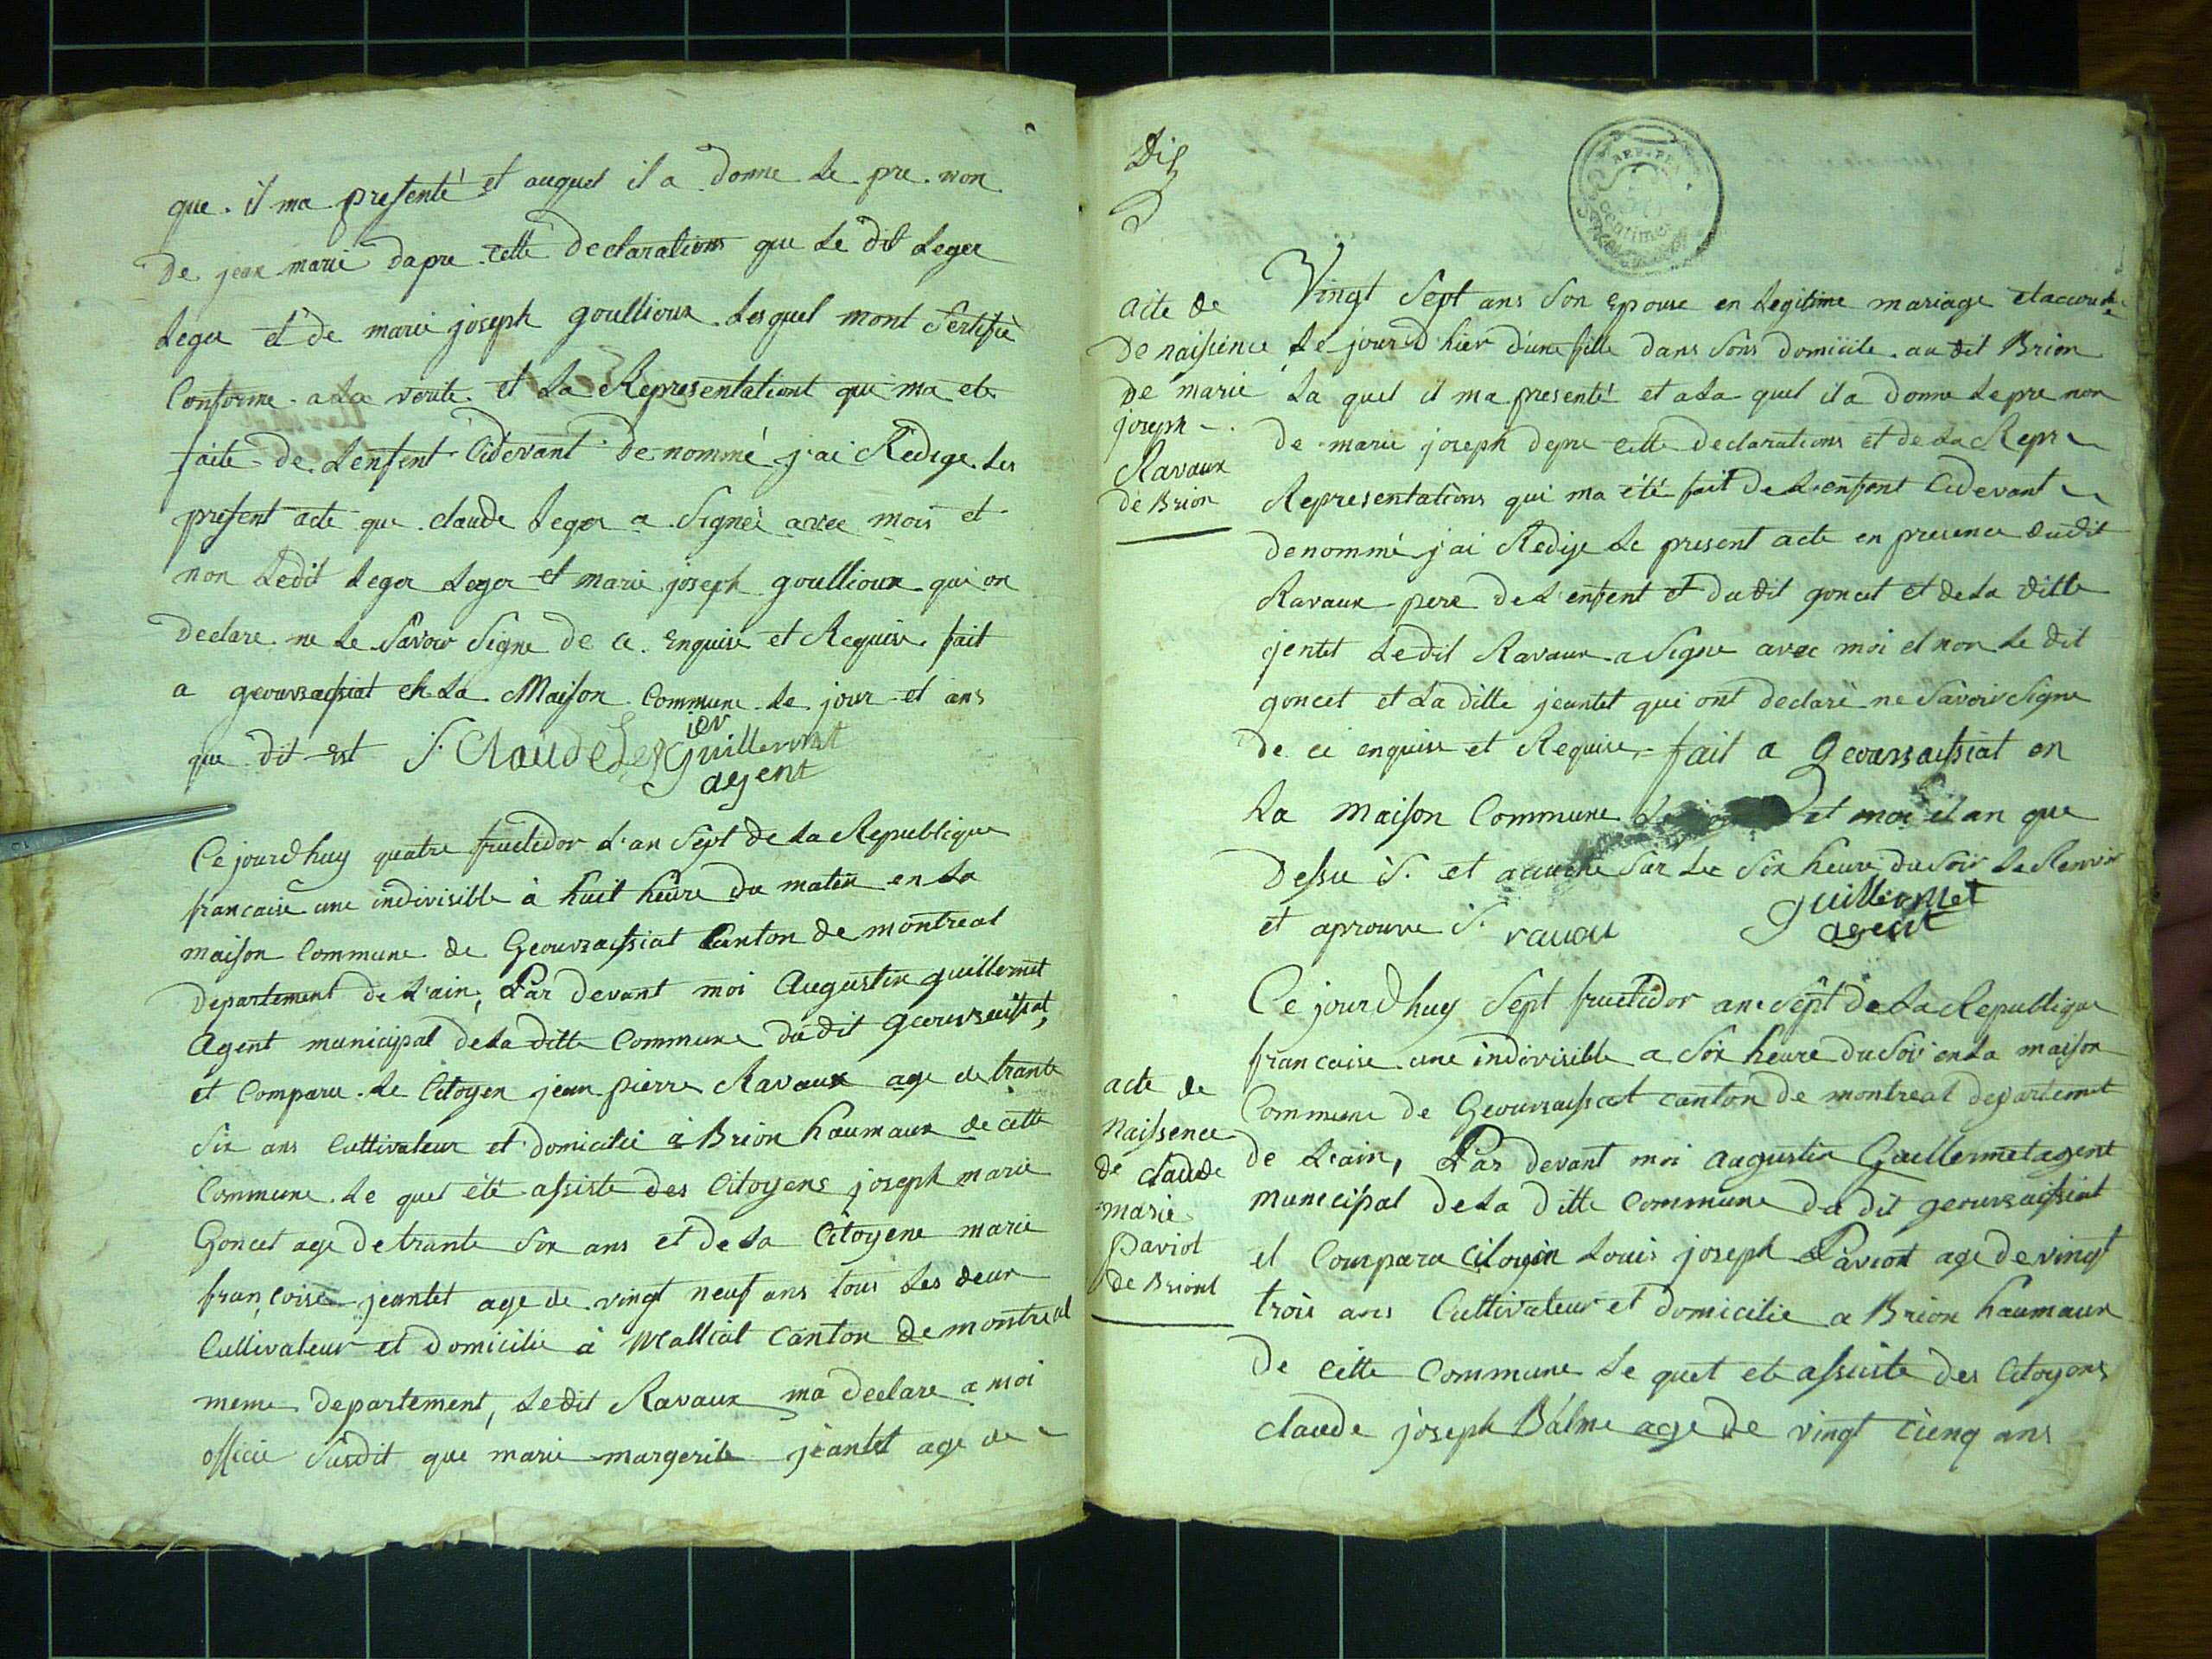 que. il ma presenté et auquel il a donne le pre. non
de jean marie dapre cette declarations que le dit leger
leger et de marie joseph goullioux lesquel mont sertifié
conforme a la verite et la Representationt qui ma ete
faite de lenfent cidevant denommé j'ai Redige les
present acte que claude leger a signéé avec mois et
non ledit leger leger et marie joseph goullioux qui on
declare ne le savoir signe de ce enquise et Requise. fait
a geovraissiat en la Maison Commune le jour et ans
que dit est S. Claude Leger
Guillermet
agent
Ce jourdhuy quatre fructidor l'an sept de la Republique
francaise une indivisible à huit heure du maten en la
maison commune de Geovraissiat Canton de montreal
departement de l'ain, Par devant moi Augustin guillermet
Agent municipal de la ditte commune dudit geovraissiat,
et comparu le Citoyen jean pierre Ravaux age de trante
six ans cultivateur et domicilié à Brion haumaux de cette
commune le quel été assiste des Citoyens joseph marie
Goncet age de trante six ans et de la Citoyene marie
françoise jeantet age de vingt neuf ans tous les deux
Cultivateur et domicilié à Malliat canton de montreal
meme departement, ledit Ravaux ma declare a moi
officié susdit que marie margerite jeantet age de
Dix
acte de
de naissence
de marie
joseph
Ravaux
de Brion
REP. FRA.
50
centimes
Vingt sept ans son epouse en legitime mariage et acouche
le jour d'hier d'une fille dans sons domicile au dit Brion
la quel il ma presenté et a la quel il a donne le pre non
de marie joseph depre cette declarations et de la Repre
Representations qui ma été fait de l'enfent cidevant
denommé j'ai Redige le present acte en presence dudit
Ravaux pere de l'enfent et dudit goncet et de la ditte
jentet ledit Ravaux a signe avec moi et non le dit
goncet et la ditte jeantet qui ont declaré ne savoir signe
de ce enquise et Requise. fait a Geovraissiat en
la maison Commune et moi et an que
dessu S. et acuche sur les six heure du soir le Renvoi
et aprouve S. ravau
Guillermet
agent
acte de
naissence
de claude
marie
paviot
de Briont
Ce jourdhuy sept fructidor an sept de la Republique
francaise une indivisible a six heure du soir en la maison
Commune de Geovraissiat canton de montreal departemet
de l'ain, Par devant moi augustin Guillermet agent
municipal de la ditte commune du dit geovraissiat
et comparu citoyen Louis joseph Paviot age de vingt
trois ans Cultivateur et domicilie a Brion haumaux
de cette commune le quel ete assiste des Citoyens
claude joseph Balme age de vingt cienq ans